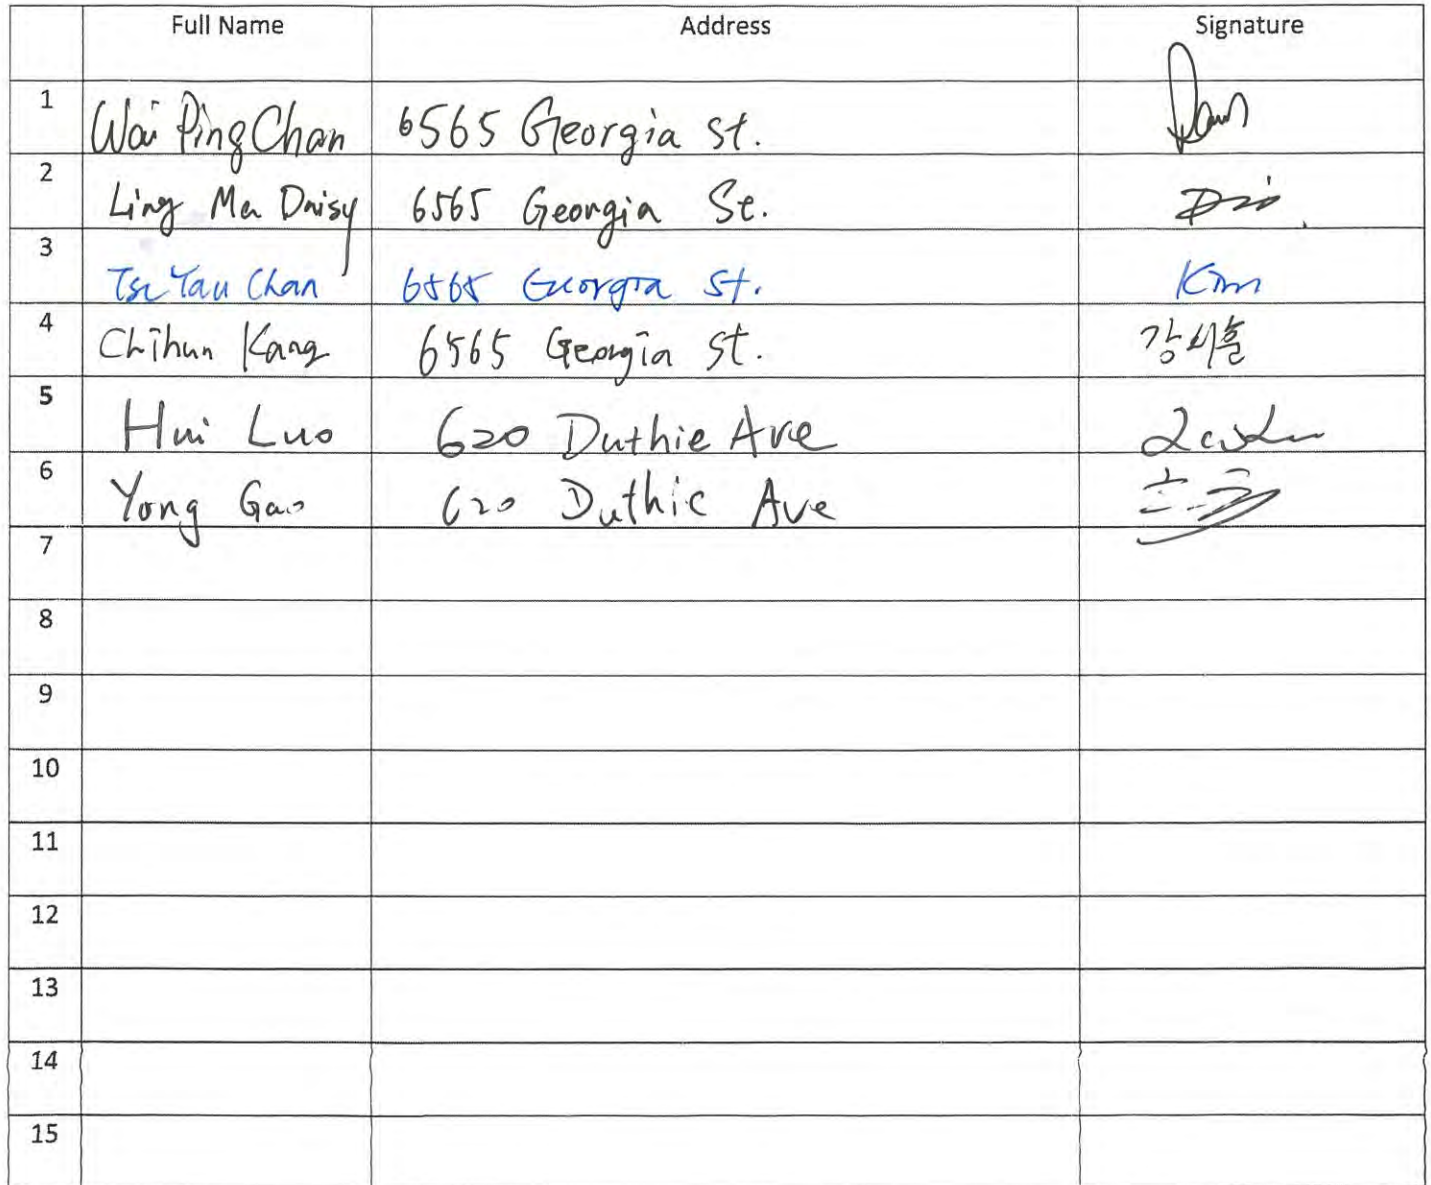 Full Name Address Signature
1 Wai Ping Chan 6565 Georgia St.
2 Ling Ma Daisy 6565 Georgia St.
3 Tsz Yau Chan 6565 Georgia St. Kim
4 Chihun Kang 6565 Georgia St. 강시훈
5 Hui Luo 620 Duthie Ave
6 Yong Gao 620 Duthie Ave
7
8
9
10
11
12
13
14
15